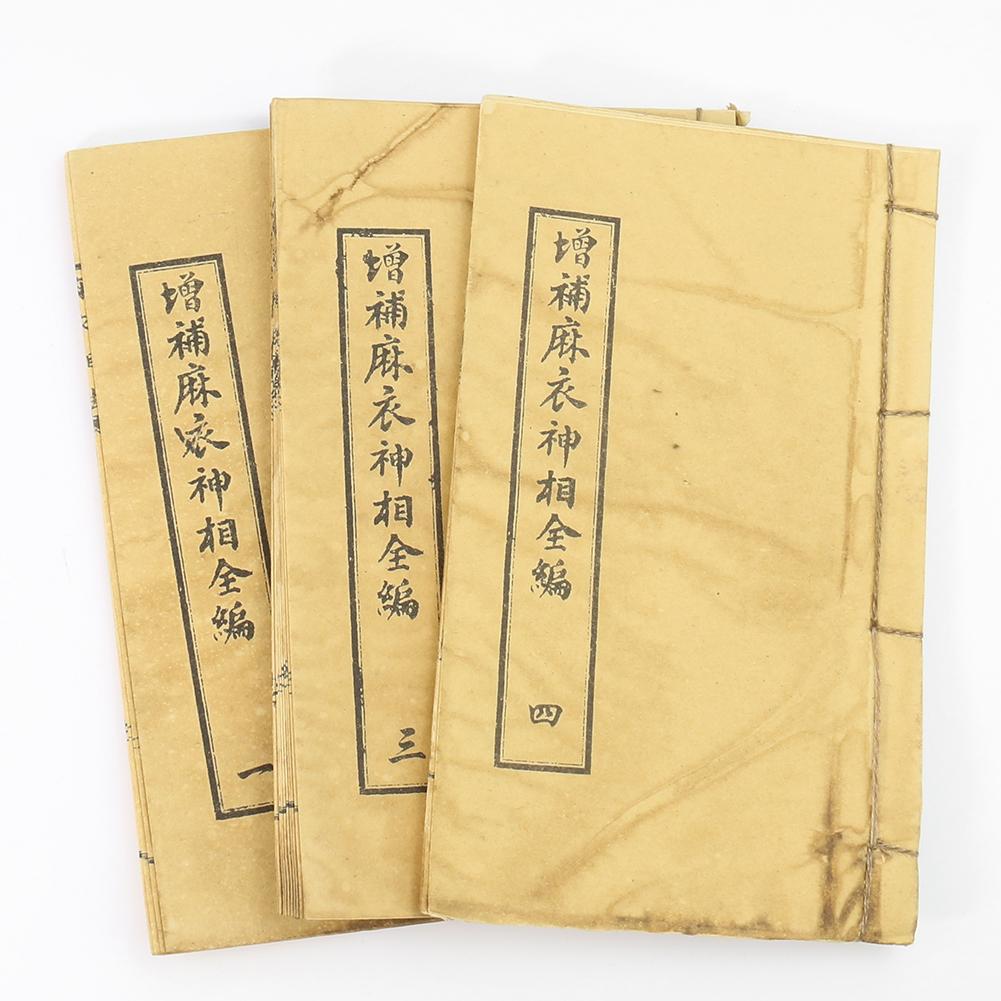 增補麻衣神相全編 一
增補麻衣神相全編 三
增補麻衣神相全編 四